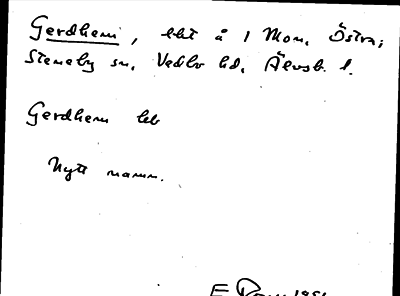 Gerdhem, lht å 1 Mon, Östra;
Steneby sn, Vedbo hd, Älvsb. l.
Gerdhem leb
Nytt namn.